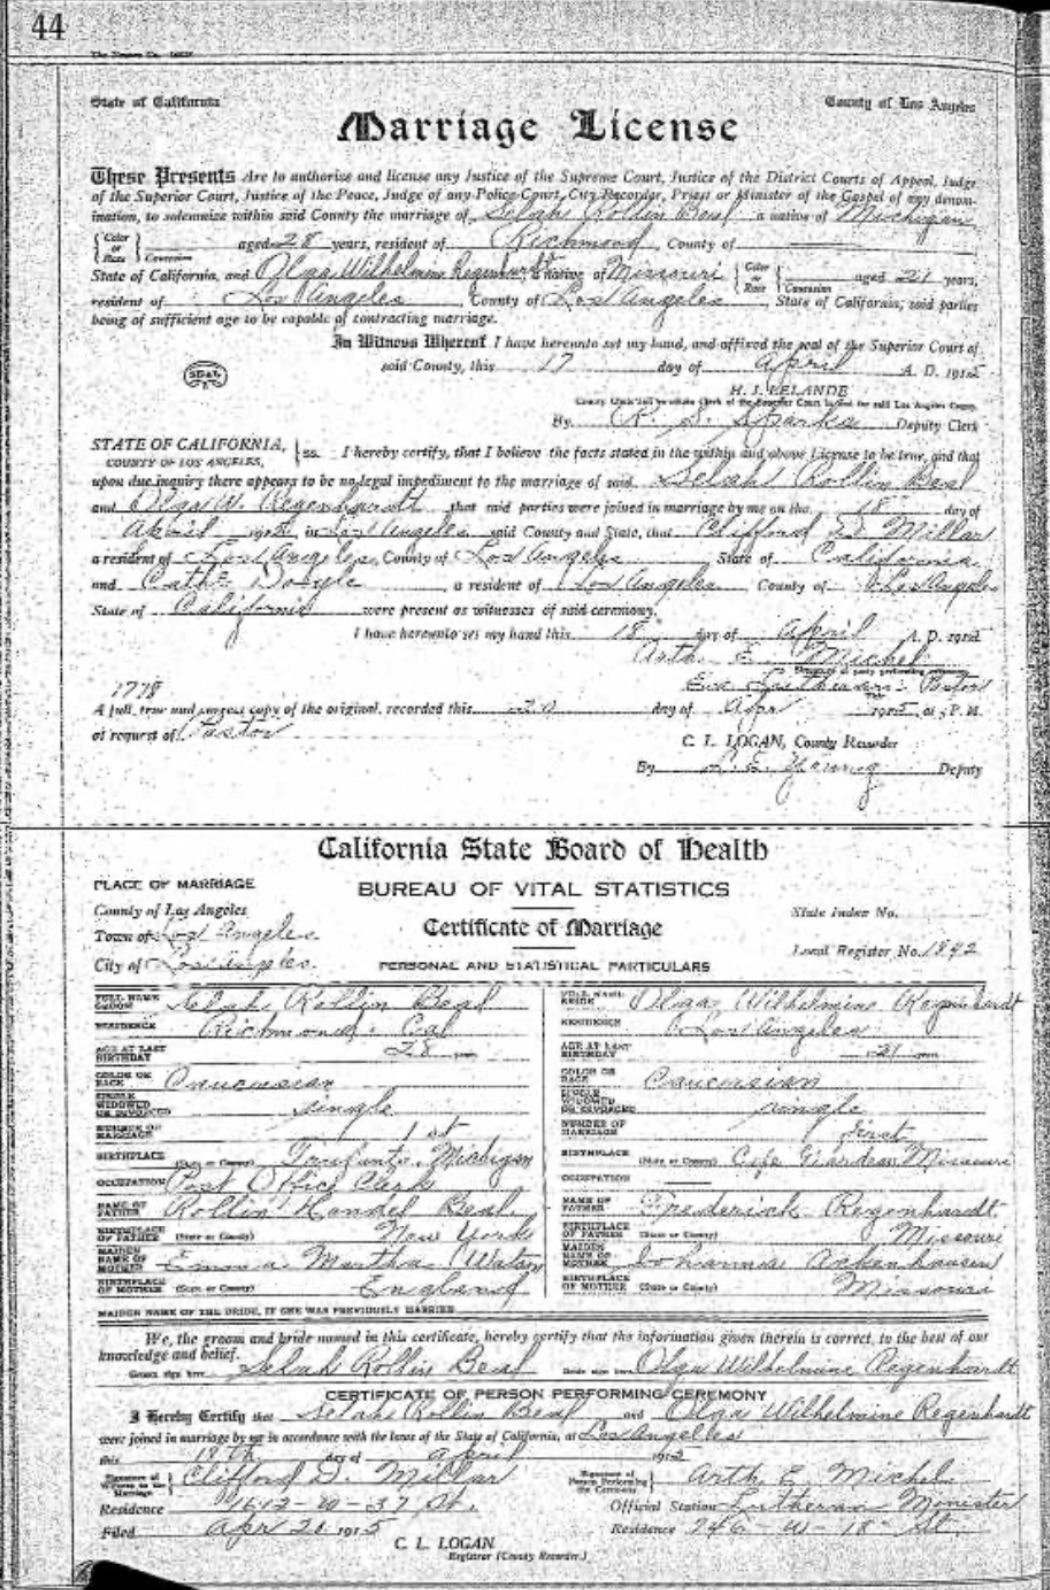 44
State of California County of Los Angeles
Marriage License
These Presents Are to authorize and license any Justice of the Supreme Court, Justice of the District Courts of Appeal, Judge
of the Superior Court, Justice of the Peace, Judge of any Police Court, City Recorder, Priest or Minister of the Gospel of any denom-
ination, to solemnize within said County the marriage of Selah Rollin Beal a native of Michigan
Color or Race Caucasian aged 28 years, resident of Richmond, County of
State of California, and Olga Wilhelmine Regenhardt native of Missouri Color or Race Caucasian aged 21 years,
resident of Los Angeles, County of Los Angeles, State of California, said parties
being of sufficient age to be capable of contracting marriage.
In Witness Whereof I have hereunto set my hand, and affixed the seal of the Superior Court of
said County, this 17 day of April A. D. 1915
SEAL
H. J. LELANDE
County Clerk and ex-officio Clerk of the Superior Court in and for said Los Angeles County
By R. S. Sparks Deputy Clerk
STATE OF CALIFORNIA,
COUNTY OF LOS ANGELES, ss. I hereby certify, that I believe the facts stated in the within and above License to be true, and that
upon due inquiry there appears to be no legal impediment to the marriage of said Selah Rollin Beal
and Olga W. Regenhardt that said parties were joined in marriage by me on the 18 day of
April 1915 in Los Angeles said County and State, that Clifford D. Millar
a resident of Los Angeles, County of Los Angeles State of California
and Cath. Doyle, a resident of Los Angeles, County of Los Angeles
State of California were present as witnesses of said ceremony.
I have hereunto set my hand this 18 day of April A. D. 1915
Arth. E. Michel
Ev. Lutheran Pastor
1778
A full, true and correct copy of the original, recorded this 20 day of Apr 1915, at P. M.
at request of Pastor
C. L. LOGAN, County Recorder
By L. E. Young Deputy
California State Board of Health
PLACE OF MARRIAGE BUREAU OF VITAL STATISTICS
County of Los Angeles State Index No.
Town of Los Angeles Certificate of Marriage
Local Register No. 1892
City of Los Angeles. PERSONAL AND STATISTICAL PARTICULARS
FULL NAME GROOM Selah Rollin Beal FULL NAME BRIDE Olga Wilhelmine Regenhardt
RESIDENCE Richmond, Cal RESIDENCE Los Angeles
AGE AT LAST BIRTHDAY 28 AGE AT LAST BIRTHDAY 21
COLOR OR RACE Caucasian COLOR OR RACE Caucasian
SINGLE WIDOWED OR DIVORCED single SINGLE WIDOWED OR DIVORCED single
NUMBER OF MARRIAGE 1st NUMBER OF MARRIAGE first
BIRTHPLACE (State or Country) Michigan BIRTHPLACE (State or Country) Cape Girardeau, Missouri
OCCUPATION Post Office Clerk OCCUPATION
NAME OF FATHER Rollin Handel Beal. NAME OF FATHER Frederick Regenhardt
BIRTHPLACE OF FATHER (State or Country) New York BIRTHPLACE OF FATHER (State or Country) Missouri
MAIDEN NAME OF MOTHER Emma Martha Watson MAIDEN NAME OF MOTHER Johanna Ackenhausen
BIRTHPLACE OF MOTHER (State or Country) England BIRTHPLACE OF MOTHER (State or Country) Missouri
MAIDEN NAME OF THE BRIDE, IF SHE WAS PREVIOUSLY MARRIED
We, the groom and bride named in this certificate, hereby certify that the information given therein is correct, to the best of our
knowledge and belief.
Groom sign here Selah Rollin Beal Bride sign here Olga Wilhelmine Regenhardt
CERTIFICATE OF PERSON PERFORMING CEREMONY
I Hereby Certify that Selah Rollin Beal and Olga Wilhelmine Regenhardt
were joined in marriage by me in accordance with the laws of the State of California, at Los Angeles
this 18th day of April 1915
Signature of Witness to the Marriage Clifford D. Millar Signature of Person Performing the Ceremony Arth. E. Michel
Residence 1612-W-37 St. Official Station Lutheran Minister
Filed Apr 20 1915 Residence 746-W-18 St.
C. L. LOGAN
Registrar (County Recorder.)